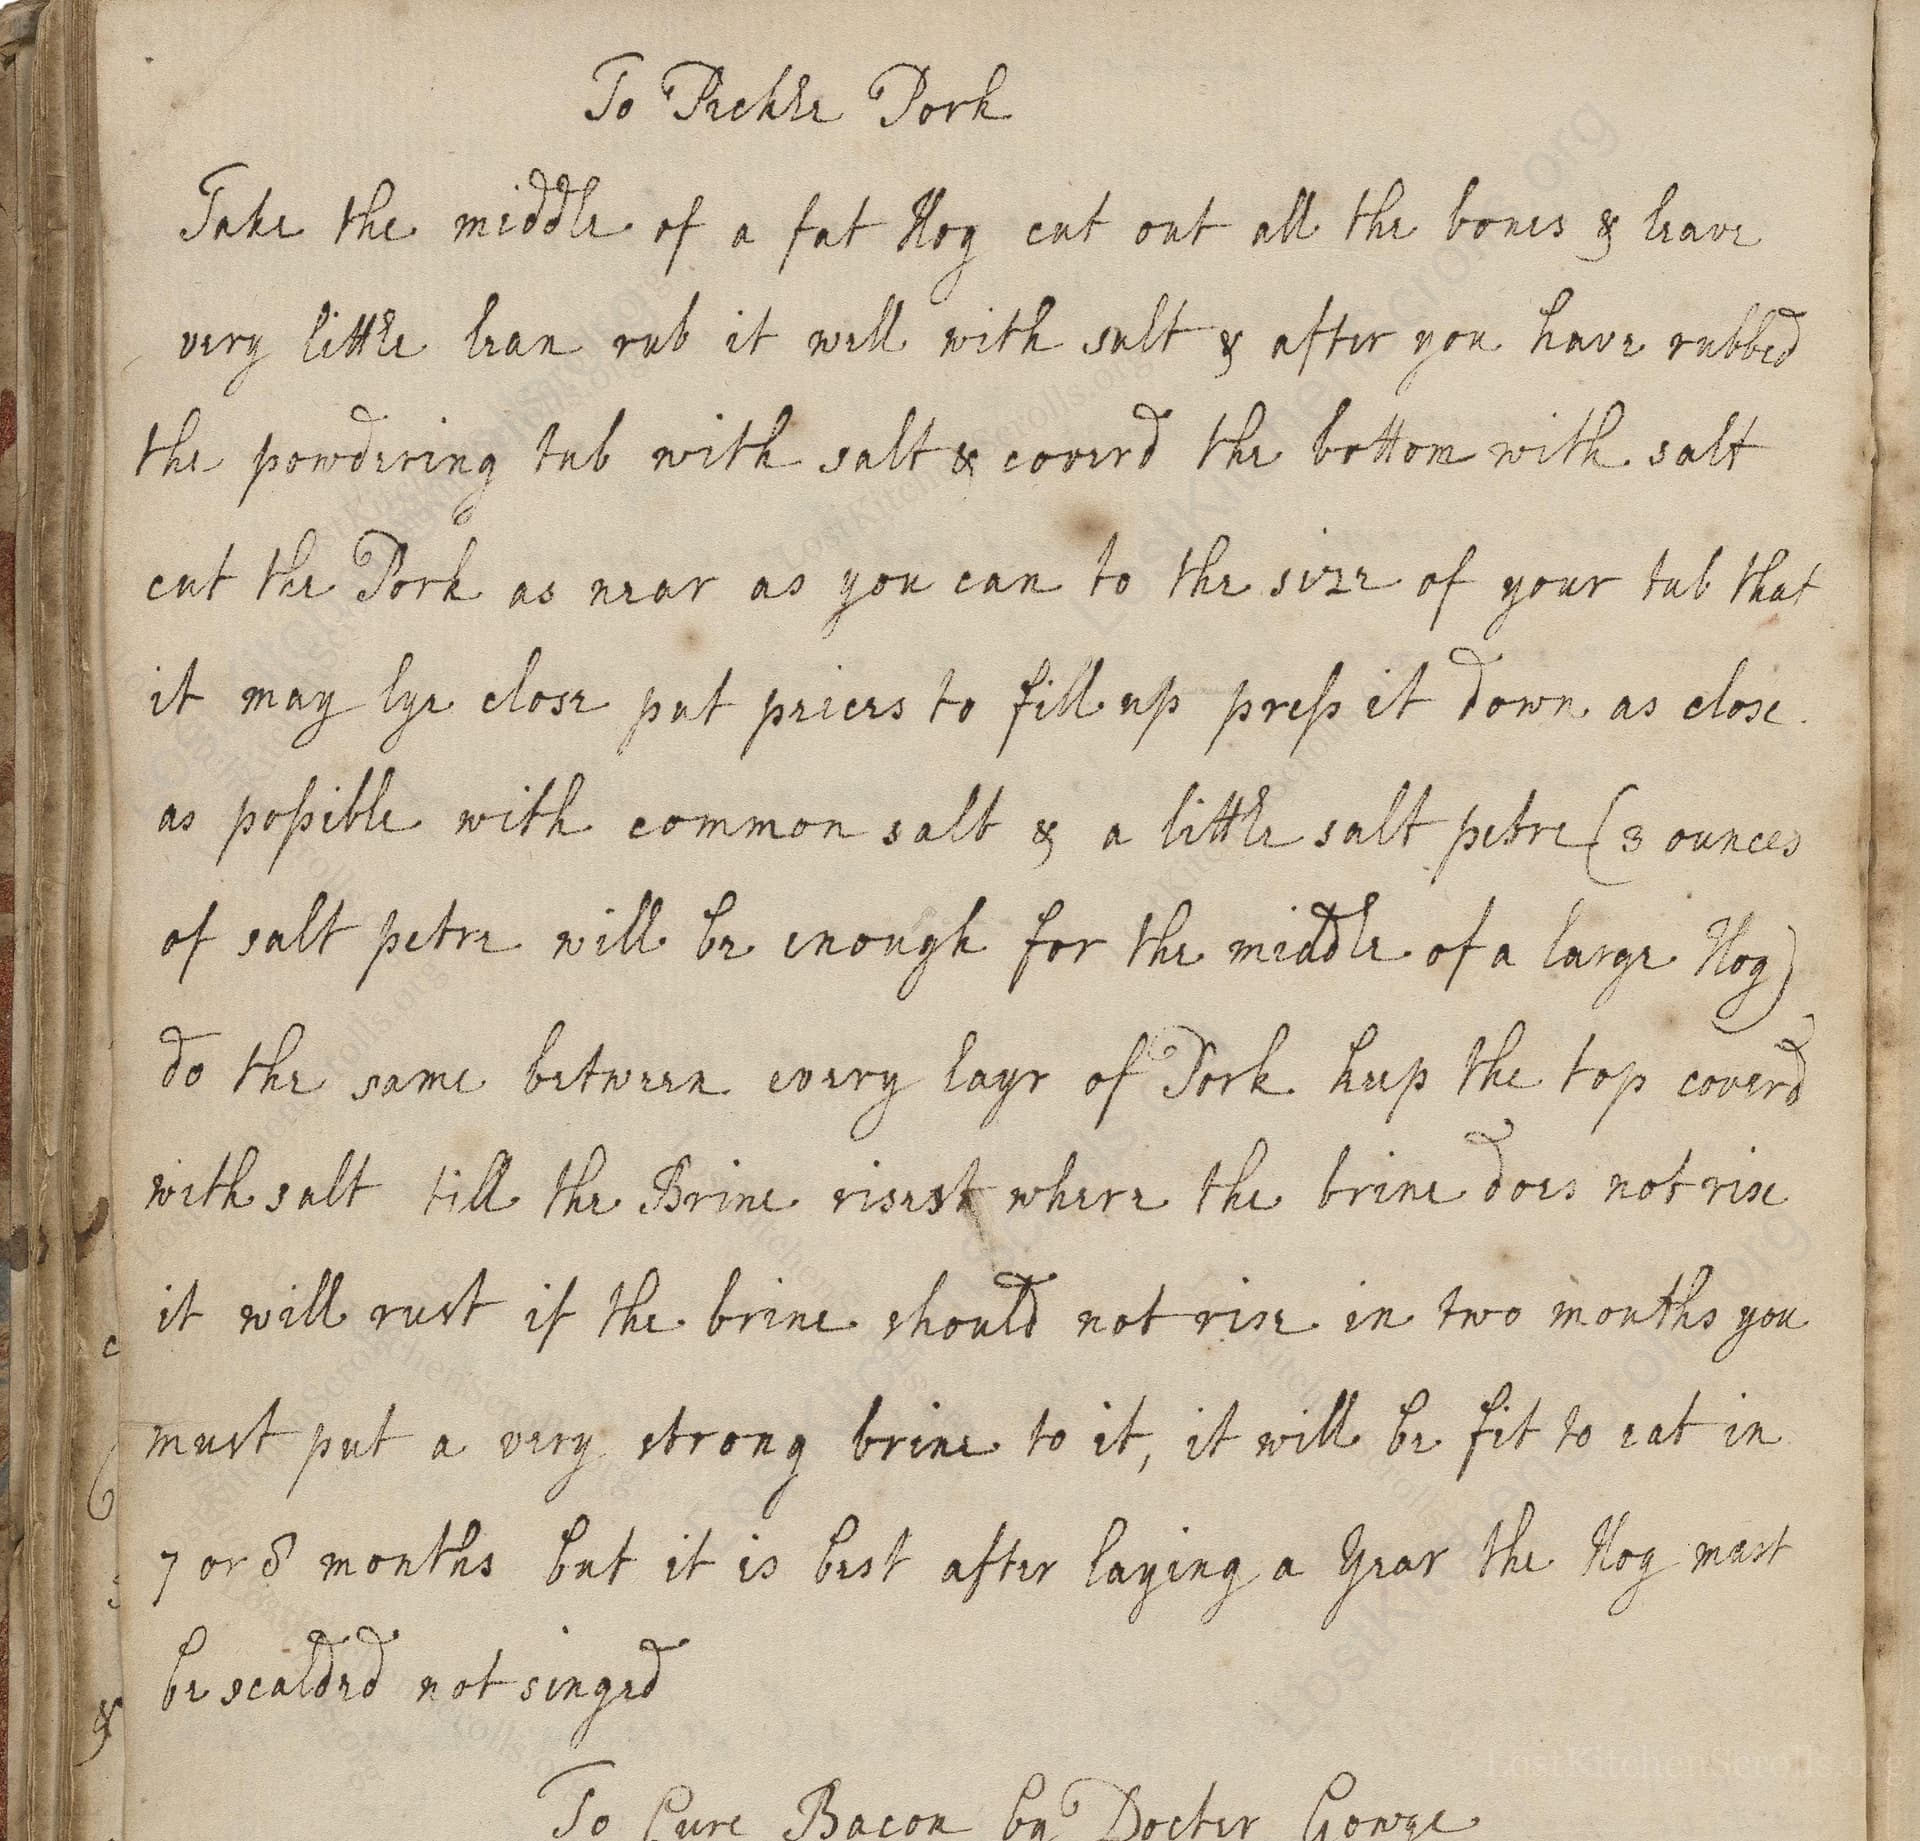 To Pickle Pork
Take the middle of a fat Hog cut out all the bones & leave
very little lean rub it well with salt & after you have rubbed
the powdering tub with salt & coverd the bottom with salt
cut the Pork as near as you can to the size of your tub that
it may lye close put peices to fill up preſs it down as close
as poſsible with common salt & a little salt petre (3 ounces
of salt petre will be enough for the middle of a large Hog)
do the same between every layr of Pork keep the top coverd
with salt till the Brine risest where the brine does not rise
it will rust if the brine should not rise in two months you
must put a very strong brine to it, it will be fit to eat in
7 or 8 months but it is best after laying a Year the Hog must
be scalded not singed
To Cure Bacon by Docter
LostKitchenScrolls.org